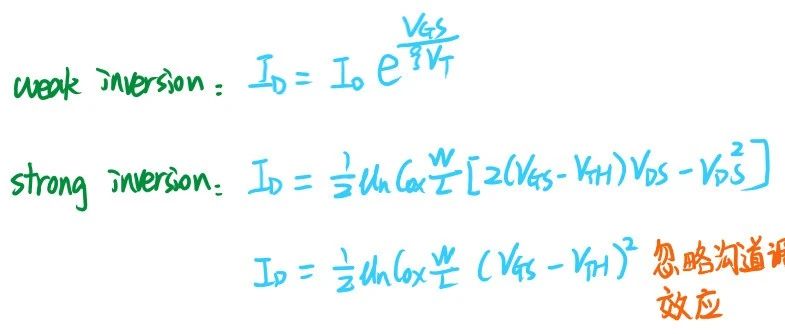 weak inversion: I_D = I_0 e^{\frac{V_{GS}}{ξV_T}}
strong inversion: I_D = \frac{1}{2} μ_n C_{ox} \frac{W}{L} [2(V_{GS} - V_{TH})V_{DS} - V_{DS}^2]
I_D = \frac{1}{2} μ_n C_{ox} \frac{W}{L} (V_{GS} - V_{TH})^2 忽略沟道调
效应